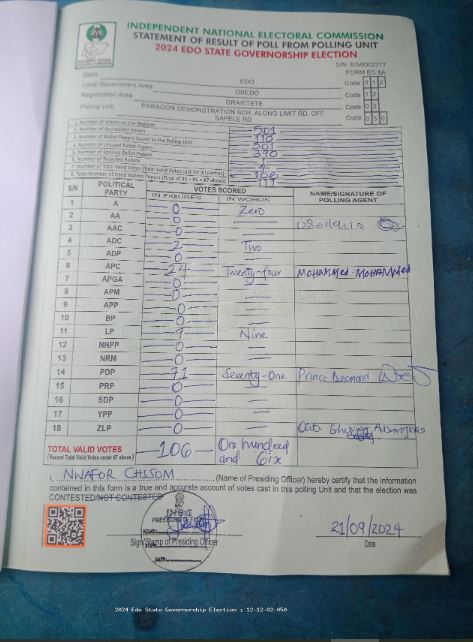 INDEPENDENT NATIONAL ELECTORAL COMMISSION
STATEMENT OF RESULT OF POLL FROM POLLING UNIT
2024 EDO STATE GOVERNORSHIP ELECTION
S/N: EG/0002777
FORM EC 8A
State EDO Code 1 2
Local Government Area OREDO Code 1 2
Registration Area GRA/ETETE Code 0 2
Polling Unit PARAGON DEMONSTRATION SCH. ALONG LIMIT RD, OFF Code 0 5 0
SAPELE RD
1. Number of Voters on the Register 501
2. Number of Accredited Voters
3. Number of Ballot Papers Issued to the Polling Unit 501
4. Number of Unused Ballot Papers 390
5. Number of Spoiled Ballot Papers
6. Number of Rejected Ballots
7. Number of Total Valid Votes (Total Valid Votes cast for all parties) 106
8. Total Number of Used Ballot Papers (Total of #5 + #6 + #7 above)
S/N POLITICAL PARTY VOTES SCORED NAME/SIGNATURE OF POLLING AGENT
IN FIGURES IN WORDS
1 A 0 Zero
2 AA 0
3 AAC 0
4 ADC 2 Two
5 ADP 0
6 APC 24 Twenty-four Mohammed Mohammed
7 APGA 0
8 APM 0
9 APP 0
10 BP 0
11 LP 9 Nine
12 NNPP 0
13 NRM 0
14 PDP 71 Seventy-One Prince Desmond
15 PRP 0
16 SDP 0
17 YPP 0
18 ZLP 0
TOTAL VALID VOTES 106 One hundred
(Record Total Valid Votes under #7 above) and Six
I, NWAFOR CHISOM (Name of Presiding Officer) hereby certify that the information
contained in this form is a true and accurate account of votes cast in this polling Unit and that the election was
CONTESTED/NOT CONTESTED
INEC
Sign/Stamp of Presiding Officer
21/09/2024
Date
2024 Edo State Governorship Election : 12-12-02-050